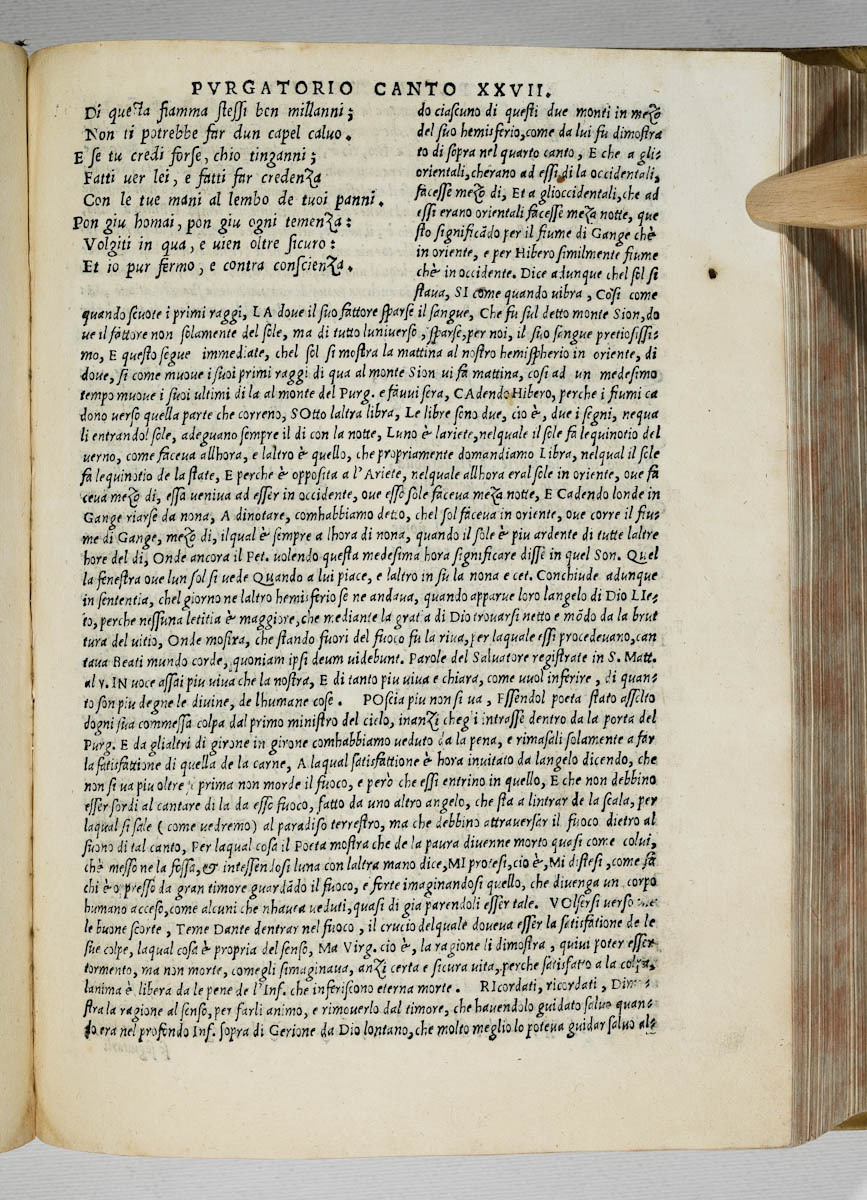 PVRGATORIO CANTO XXVII.
Di questa fiamma stessi ben millanni;
Non ti potrebbe far dun capel caluo.
E se tu credi forse, chio tinganni;
Fatti uer lei, e fatti far credenza
Con le tue mani al lembo de tuoi panni.
Pon giu homai, pon giu ogni temenza:
Volgiti in qua, e uien oltre sicuro:
Et io pur fermo, e contra conscienza.
do ciascuno di questi due monti in mezo
del suo hemisferio, come da lui fu dimostra
to di sopra nel quarto canto, E che a gli=
orientali, cherano ad essi, di la occidentali,
facesse mezo di, Et a glioccidentali, che ad
essi erano orientali facesse meza notte, que
sto significādo per il fiume di Gange chè
in oriente, e per Hibero similmente fiume
chè in occidente. Dice adunque chel sol si
staua, SI come quando uibra, Cosi come
quando scuote i primi raggi, LA doue il suo fattore sparse il sangue, Che fu sul detto monte Sion, do
ue il fattore non solamente del sole, ma di tutto luniuerso, sparse, per noi, il suo sangue pretiosissi=
mo, E questo segue immediate, chel sol si mostra la mattina al nostro hemispherio in oriente, di
doue, si come muoue i suoi primi raggi di qua al monte Sion ui fa mattina, cosi ad un medesimo
tempo muoue i suoi ultimi di la al monte del Purg. e fauui sera, CAdendo Hibero, perche i fiumi ca
dono uerso quella parte che correno, SOtto laltra libra, Le libre sono due, cio è, due i segni, nequa
li entrando l sole, adeguano sempre il di con la notte, Luno è lariete, nelquale il sole fa lequinotio del
uerno, come faceua allhora, e laltro è quello, che propriamente domandiamo Libra, nelqual il sole
fa lequinotio de la state, E perche è opposita a l'Ariete, nelquale allhora eral sole in oriente, oue fa
ceua mezo di, essa ueniua ad esser in occidente, oue esso sole faceua meza notte, E Cadendo londe in
Gange riarse da nona, A dinotare, comhabbiamo detto, chel sol faceua in oriente, oue corre il fiu=
me di Gange, mezo di, ilqual è sempre a lhora di nona, quando il sole è piu ardente di tutte laltre
hore del di, Onde ancora il Pet. uolendo questa medesima hora significare disse in quel Son. Quel
la fenestra oue lun sol si uede Quando a lui piace, e laltro in su la nona e cet. Conchiude adunque
in sententia, chel giorno ne laltro hemisferio se ne andaua, quando apparue loro langelo di Dio LIe=
to, perche nessuna letitia è maggiore, che mediante la gratia di Dio trouarsi netto e mōdo da la brut
tura del uitio, Onde mostra, che stando fuori del fuoco su la riua, per laquale essi procedeuano, can
taua Beati mundo corde, quoniam ipsi deum uidebunt. Parole del Saluatore registrate in S. Matt.
al v. IN uoce assai piu uiua che la nostra, E di tanto piu uiua e chiara, come uuol inferire, di quan=
to son piu degne le diuine, de lhumane cose. POscia piu non si ua, Essendol poeta stato assolto
dogni sua commessa colpa dal primo ministro del cielo, inanzi chegli intrasse dentro da la porta del
Purg. E da glialtri di girone in girone comhabbiamo ueduto da la pena, e rimasali solamente a far
la satisfattione di quella de la carne, A laqual satisfattione è hora inuitato da langelo dicendo, che
non si ua piu oltre prima non morde il fuoco, e però che essi entrino in quello, E che non debbino
esser sordi al cantare di la da esso fuoco, fatto da uno altro angelo, che sta a lintrar de la scala, per
laqual si sale (come uedremo) al paradiso terrestro, ma che debbino attrauersar il fuoco dietro al
suono di tal canto, Per laqual cosa il Poeta mostra che de la paura diuenne morto quasi come colui,
chè messo ne la fossa, & intessendosi luna con laltra mano dice, MI protesi, cio è, Mi distesi, come fa
chi è oppresso da gran timore guardādo il fuoco, e forte imaginandosi quello, che diuenga un corpo
humano acceso, come alcuni che nhauea ueduti, quasi di gia parendoli esser tale. VOlsersi uerso me
le buone scorte, Teme Dante dentrar nel fuoco, il crucio delquale doueua esser la satisfatione de le
sue colpe, laqual cosa è propria del senso, Ma Virg. cio è, la ragione li dimostra, quiui poter esser
tormento, ma non morte, comegli simaginaua, anzi certa e sicura uita, perche satisfatto a la colpa,
lanima è libera da le pene de l'Inf. che inferiscono eterna morte. RIcordati, ricordati, Dimo=
stra la ragione al senso, per farli animo, e rimouerlo dal timore, che hauendolo guidato saluo quan=
do era nel profondo Inf. sopra di Gerione da Dio lontano, che molto meglio lo poteua guidar saluo al=